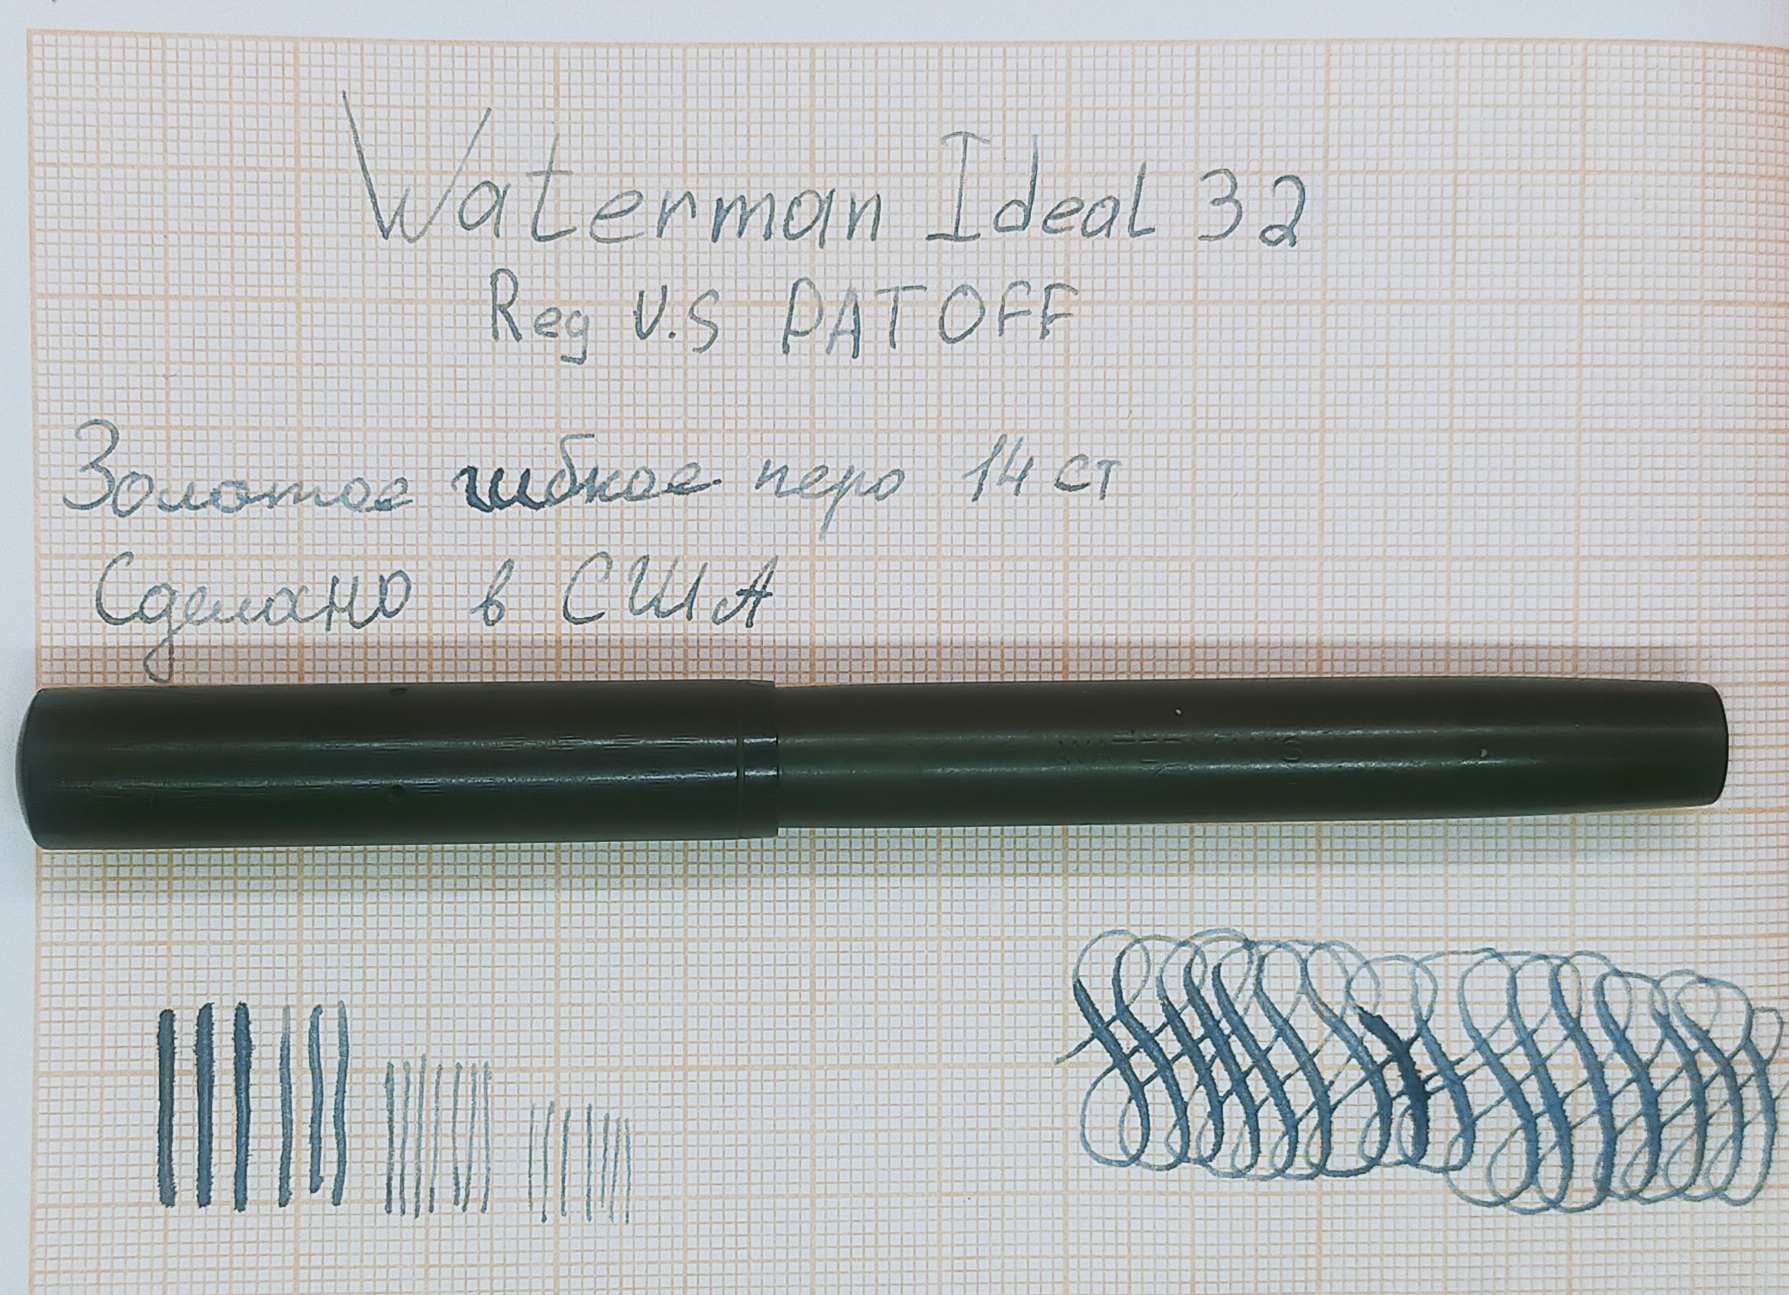 Waterman Ideal 32
Reg U.S PAT OFF
Золотое гибкое перо 14 ст
Сделано в США